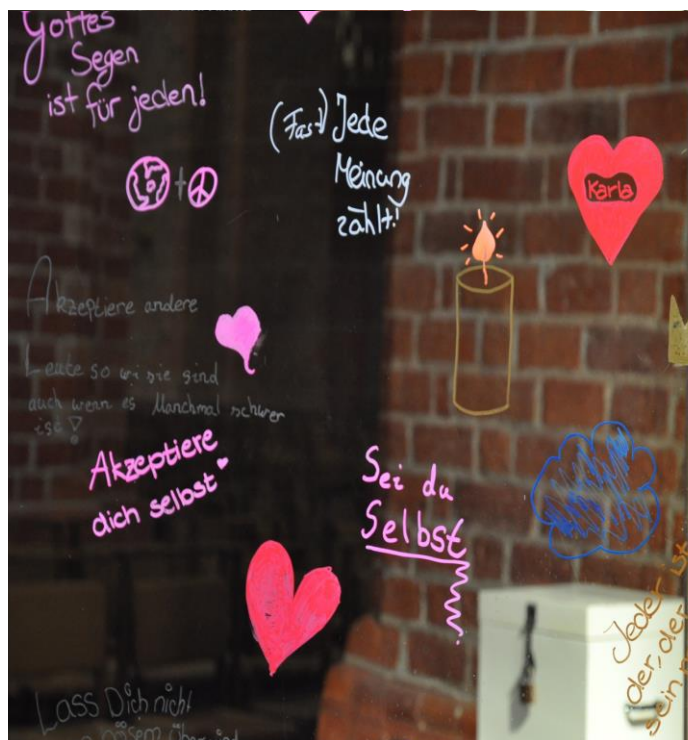 Gottes
Segen
ist für jeden!
(Fast) Jede
Meinung
zählt!
Karla
Akzeptiere andere
Leute so wi sie sind
auch wenn es Manchmal schwer
ist!
Akzeptiere
dich selbst
Sei du
Selbst
Jeder ist
der, der
sein
Lass Dich nicht